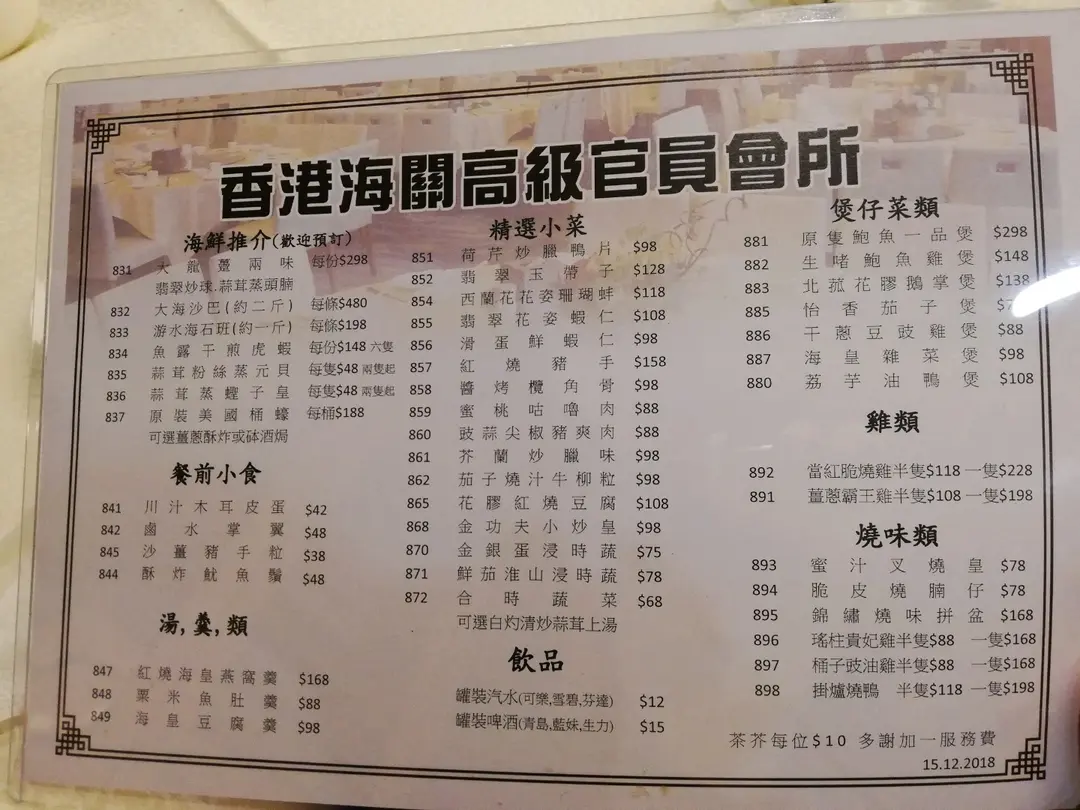 香港海關高級官員會所
海鮮推介(歡迎預訂)
831 大龍躉兩味 每份$298
翡翠炒球.蒜茸蒸頭腩
832 大海沙巴(約二斤) 每條$480
833 游水海石班(約一斤) 每條$198
834 魚露干煎虎蝦 每份$148 六隻
835 蒜茸粉絲蒸元貝 每隻$48 兩隻起
836 蒜茸蒸蟶子皇 每隻$48 兩隻起
837 原裝美國桶蠔 每桶$188
可選薑蔥酥炸或砵酒焗
餐前小食
841 川汁木耳皮蛋 $42
842 鹵水掌翼 $48
845 沙薑豬手粒 $38
844 酥炸魷魚鬚 $48
湯,羹,類
847 紅燒海皇燕窩羹 $168
848 粟米魚肚羹 $88
849 海皇豆腐羹 $98
精選小菜
851 荷芹炒臘鴨片 $98
852 翡翠玉帶子 $128
854 西蘭花花姿珊瑚蚌 $118
855 翡翠花姿蝦仁 $108
856 滑蛋鮮蝦仁 $98
857 紅燒豬手 $158
858 醬烤欖角骨 $98
859 蜜桃咕嚕肉 $88
860 豉蒜尖椒豬爽肉 $88
861 芥蘭炒臘味 $98
862 茄子燒汁牛柳粒 $98
865 花膠紅燒豆腐 $108
868 金功夫小炒皇 $98
870 金銀蛋浸時蔬 $75
871 鮮茄淮山浸時蔬 $78
872 合時蔬菜 $68
可選白灼清炒蒜茸上湯
飲品
罐裝汽水(可樂,雪碧,芬達) $12
罐裝啤酒(青島,藍妹,生力) $15
煲仔菜類
881 原隻鮑魚一品煲 $298
882 生啫鮑魚雞煲 $148
883 北菰花膠鵝掌煲 $138
885 怡香茄子煲
886 干蔥豆豉雞煲 $88
887 海皇雜菜煲 $98
880 荔芋油鴨煲 $108
雞類
892 當紅脆燒雞半隻$118 一隻$228
891 薑蔥霸王雞半隻$108 一隻$198
燒味類
893 蜜汁叉燒皇 $78
894 脆皮燒腩仔 $78
895 錦繡燒味拼盆 $168
896 瑤柱貴妃雞半隻$88 一隻$168
897 桶子豉油雞半隻$88 一隻$168
898 掛爐燒鴨 半隻$118 一隻$198
茶芥每位$10 多謝加一服務費
15.12.2018